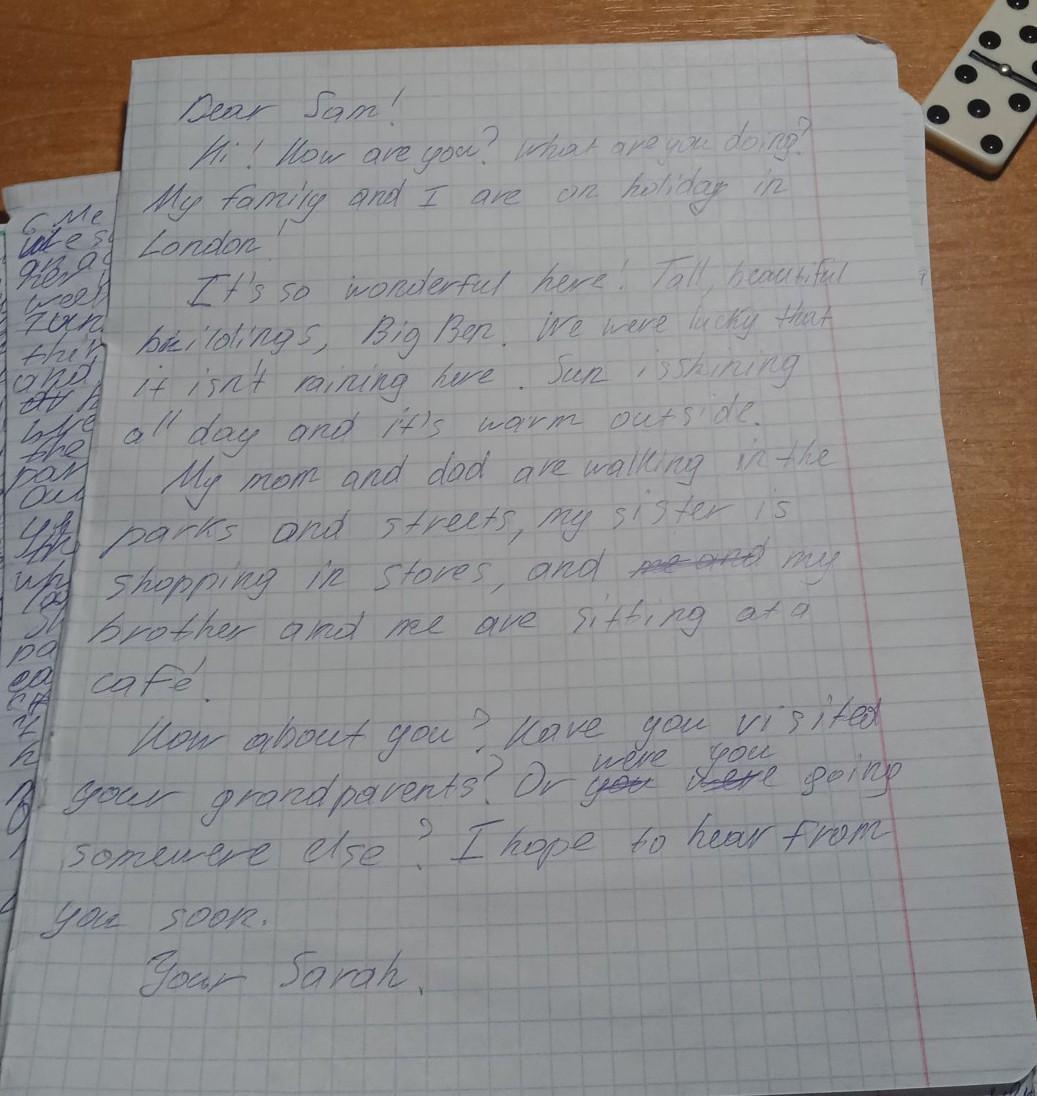 Dear Sam!
Hi! How are you? What are you doing?
My family and I are on holiday in
London!
It's so wonderful here! Tall, beautiful
buildings, Big Ben. We were lucky that
it isn't raining here. Sun is shining
all day and it's warm outside.
My mom and dad are walking in the
parks and streets, my sister is
shopping in stores, and me and my
brother and me are sitting at a
café.
How about you? Have you visited
were you
your grandparents? Or you were going
somewere else? I hope to hear from
you soon.
Your Sarah.